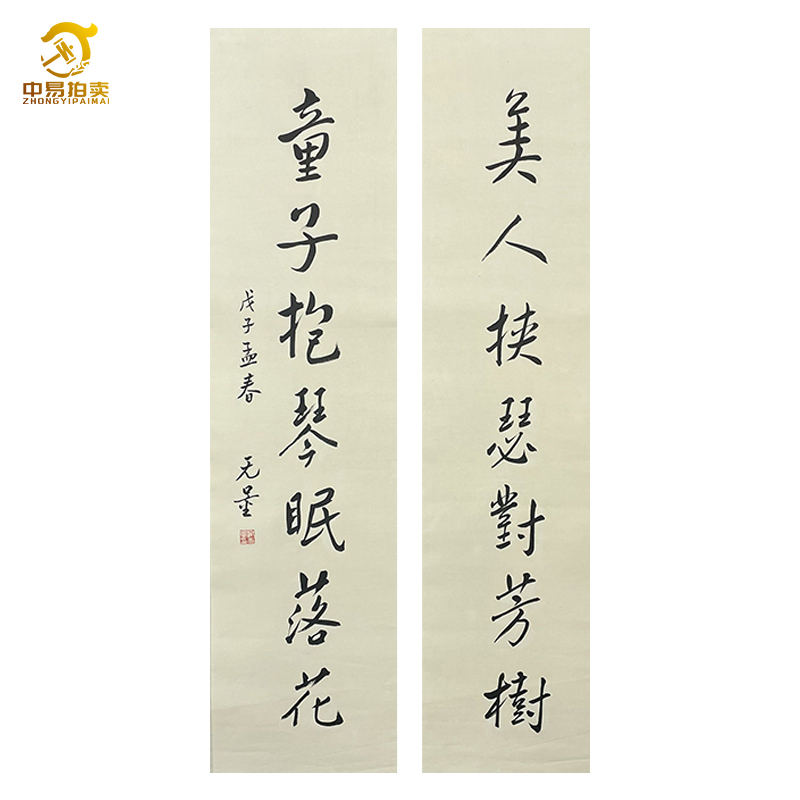 中易拍卖
ZHONGYIPAIMAI
美人挾瑟對芳樹
童子抱琴眠落花
戊子孟春 无量